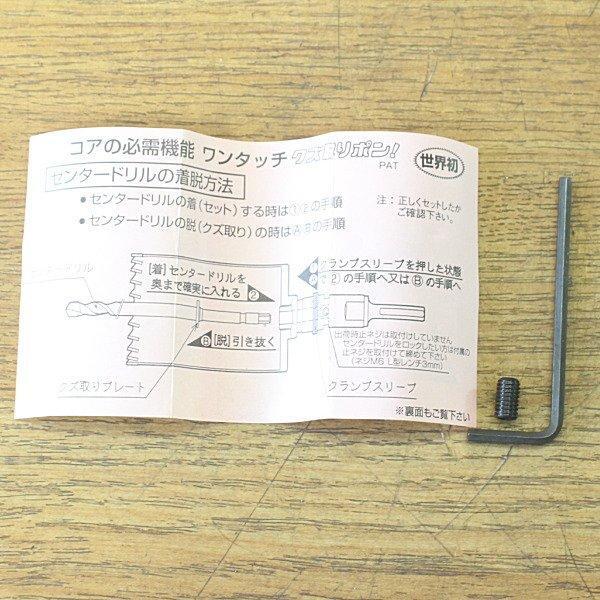 コアの必需機能 ワンタッチ クズ取リポン!
PAT
世界初
センタードリルの着脱方法
• センタードリルの着(セット)する時は①②の手順
• センタードリルの脱(クズ取り)の時はⒶⒷの手順
注:正しくセットしたか
ご確認下さい。
センタードリル
[着]センタードリルを
奥まで確実に入れる ②
Ⓑ [脱]引き抜く
クランプスリーブを押した状態
②の手順へ又はⒷの手順へ
出荷時止ネジは取付けしていません
センタードリルをロックしたい方は付属の
止ネジを取付けて締めて下さい
(ネジM6 L型レンチ3mm)
クズ取りプレート
クランプスリーブ
※裏面もご覧下さい